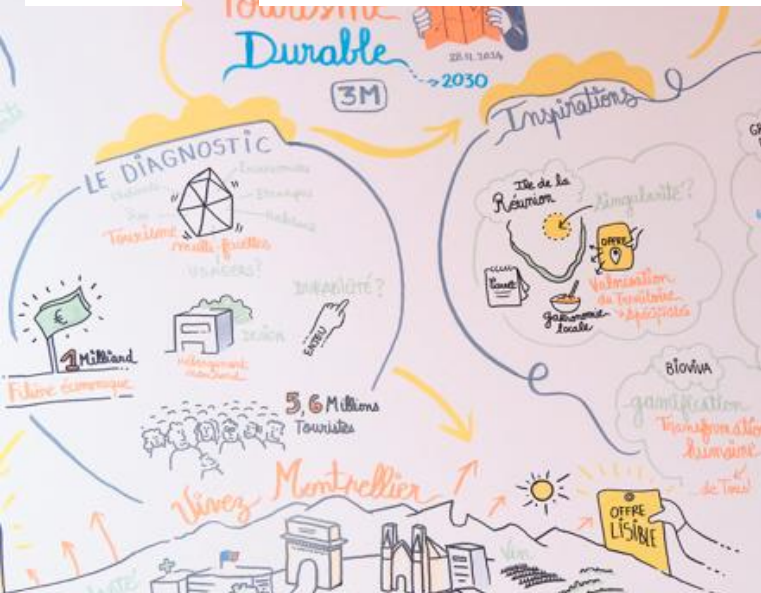 Tourisme
Durable
28.11.2024
2030
3M
LE DIAGNOSTIC
Tourisme
multi-facettes
USAGERS?
DURABILITÉ?
ENJEU
DESIGN
Hébergement
marchand
€
1 Milliard
Filière économique
5,6 Millions
Touristes
Inspirations
Ile de la
Réunion
Singularité?
OFFRE
Carnet
Gastronomie
locale
Valorisation
du Territoire
Spécificités
BIOVIVA
gamification
Transformation
humaine
de Tous!
Vivez Montpellier
OFFRE
LISIBLE
Vin